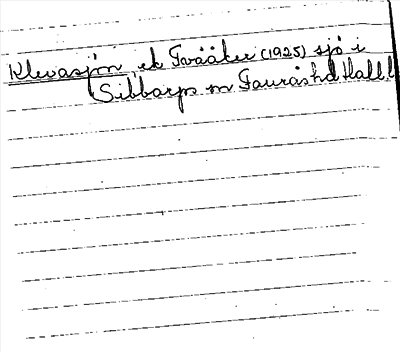 Klevasjön, ek Tvååker (1925) sjö i
Sibbarps sn Fauråshd Hall. l